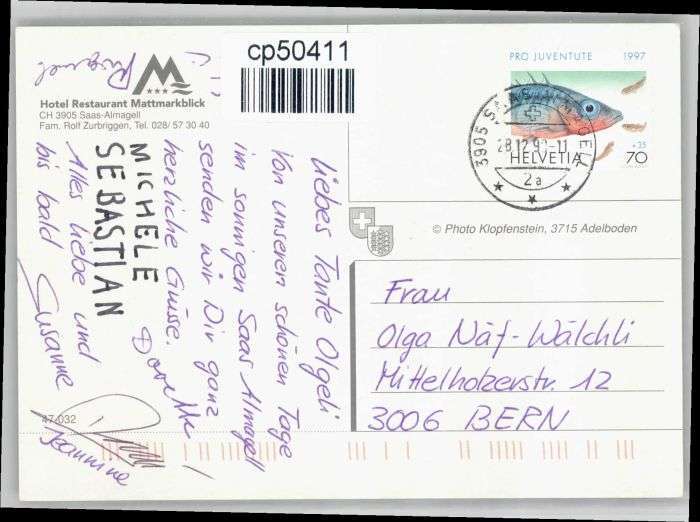 cp50411
PRO JUVENTUTE 1997
+35
HELVETIA 70
3905 SAAS-ALMAGELL
28.12.9 -11
2a
M
Hotel Restaurant Mattmarkblick
CH 3905 Saas-Almagell
Fam. Rolf Zurbriggen, Tel. 028/ 57 30 40
© Photo Klopfenstein, 3715 Adelboden
liebes Tante Olgeli
Von unseren schönen Tage
im sonnigen Saas Almagell
senden wir Dir ganz
herzliche Grüsse.
MICHELE
SEBASTIAN
Alles liebe und
bis bald Susanne
Jeannine
47-032
Frau
Olga Näf-Wälchli
Mittelholzerstr. 12
3006 BERN